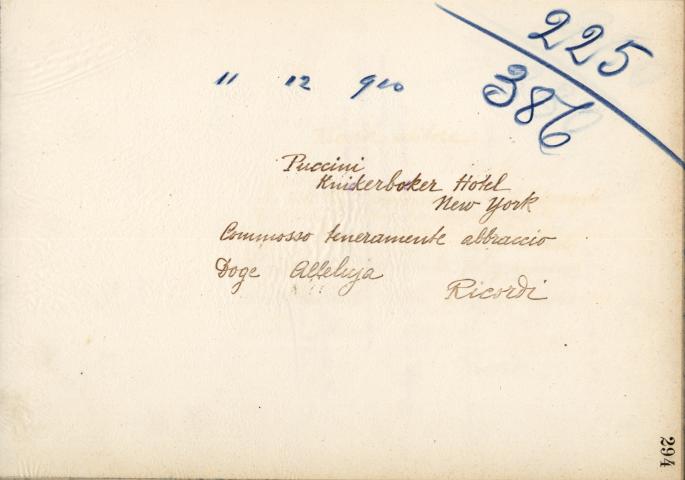 225
386
11 12 910
Puccini
Knikerboker Hotel
New York
Commosso teneramente abbraccio
Doge Alleluja
Ricordi
294